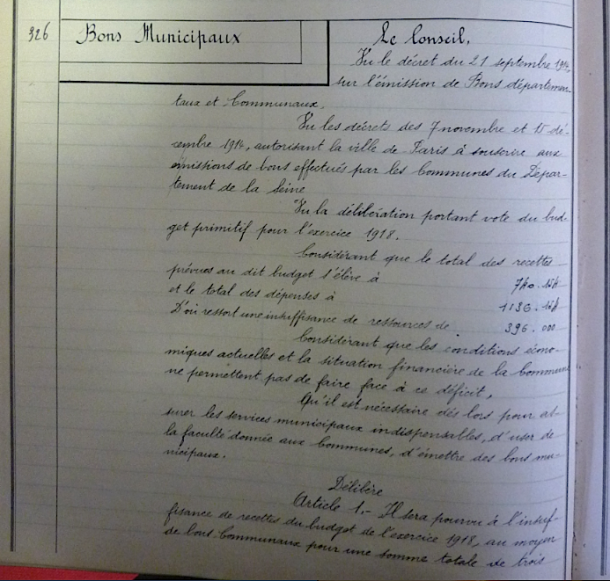 326
Bons Municipaux
Le Conseil,
Vu le décret du 21 septembre 1914,
sur l'émission de Bons départemen-
taux et Communaux.
Vu les décrets des 7 novembre et 15 dé-
cembre 1914, autorisant la ville de Paris à souscrire aux
émissions de bons effectués par les Communes du Dépar-
tement de la Seine
Vu la délibération portant vote du bud-
get primitif pour l'exercice 1918.
Considérant que le total des recettes
prévues au dit budget s'élève à
et le total des dépenses à
D'où ressort une insuffisance de ressources de 396.000
Considérant que les conditions écono-
miques actuelles et la situation financière de la Commune
ne permettent pas de faire face à ce déficit,
Qu'il est nécessaire dès lors pour as-
surer les services municipaux indispensables, d'user de
la faculté donnée aux Communes, d'émettre des bons mu-
nicipaux.
Délibère
Article 1.- Il sera pourvu à l'insuf-
fisance de recettes du budget de l'exercice 1918, au moyen
de bons Communaux pour une somme totale de trois